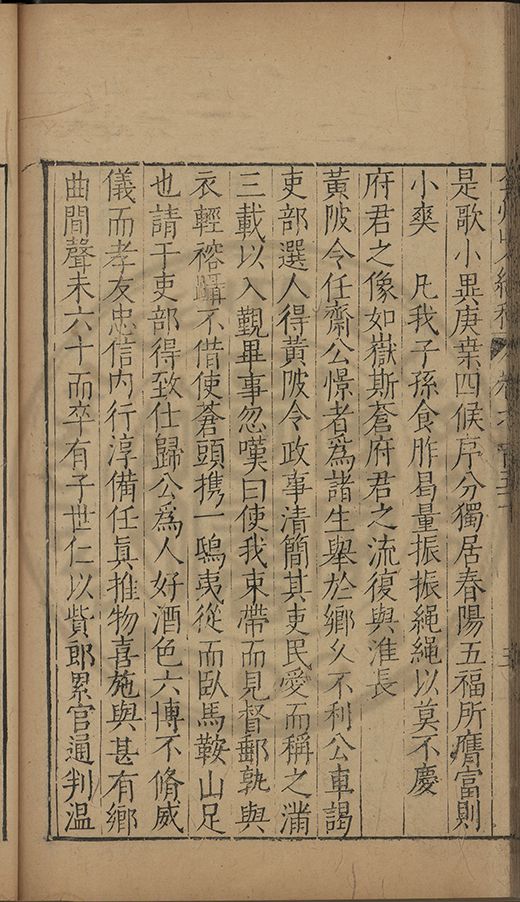 是歌小異庚桒四候序分獨居春陽五福所膺富則
小爽　凡我子孫食胙曷量振振繩繩以莫不慶
府君之像如嶽斯蒼府君之流復與淮長
黃陂令任齋公憬者爲諸生舉於鄉久不利公車謁
吏部選人得黃陂令政事清簡其吏民愛而稱之滿
三載以入覲畢事忽嘆曰使我束帶而見督郵孰與
衣輕袷躡不借使蒼頭携一鴟夷從而臥馬鞍山足
也請于吏部得致仕歸公爲人好酒色六博不脩威
儀而孝友忠信內行淳備任眞推物喜施與甚有鄉
曲間聲未六十而卒有子世仁以貲郎累官通判溫